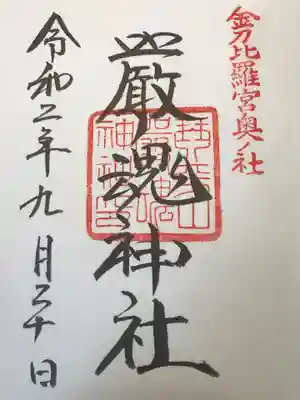 金刀比羅宮奥ノ社
嚴魂神社
令和二年九月三十日